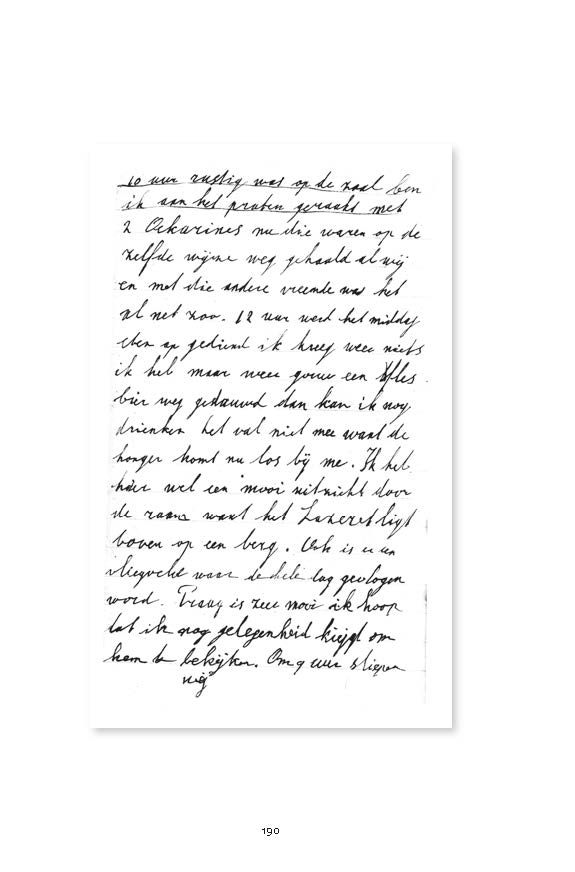 10 uur rustig was op de zaal ben
ik aan het praten geraakt met
2 Oekarines nu die waren op de
zelfde wijze weg gehaald al wij
en met die andere vreemde was het
al net zoo. 12 uur werd het middag
eten op gediend ik kreeg weer niets
ik heb maar weer gouw een fles
bier weg gedauwd dan kan ik nog
drienken het val niet mee want de
honger komt nu los bij me. Ik heb
hier wel een mooi uitzicht door
de raam want het Lazeret ligt
boven op een berg. Ook is er een
vliegvelt waar de hele dag gevlogen
word. Praag is zeer mooi ik hoop
dat ik nog gelegenheid krijgt om
hem te bekijken. Om 9 uur sliepen
wij
190